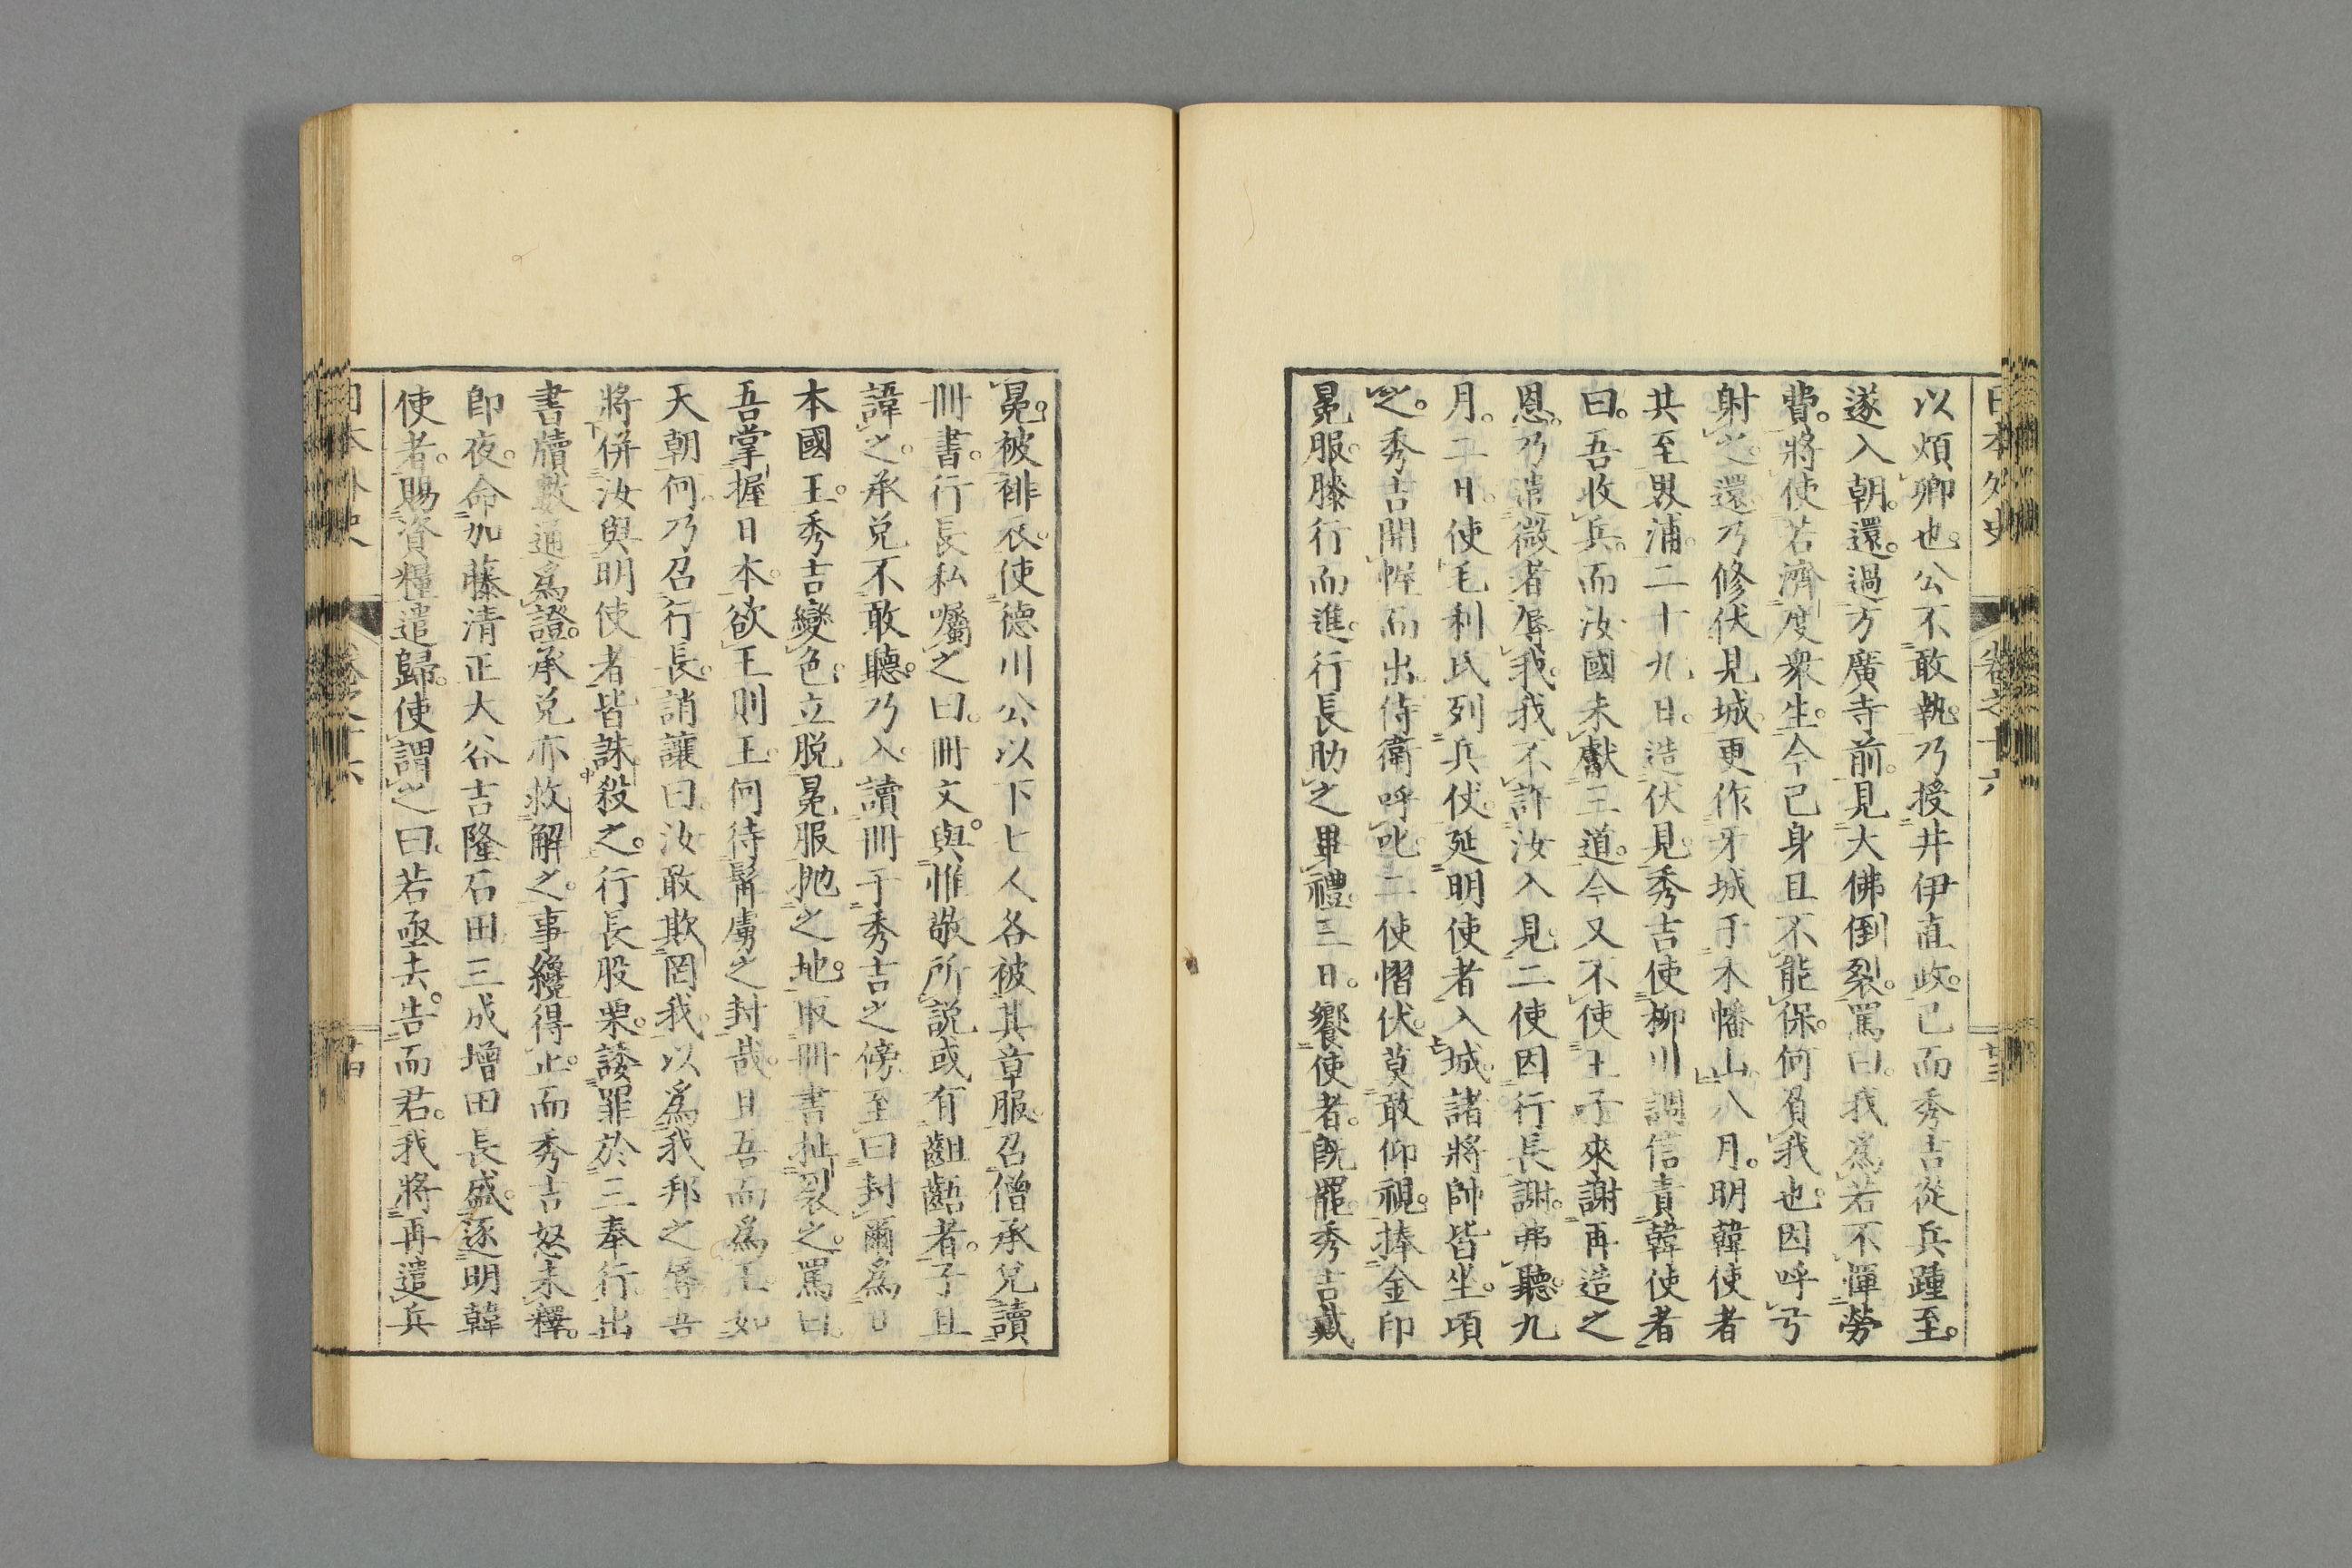 日本外史 卷之十六 廿三
以煩卿也。公不敢執。乃授井伊直政。已而秀吉從兵踵至。
遂入朝。還。過方廣寺前。見大佛倒裂。罵曰。我爲若不憚勞
費。將使若濟度衆生。今己身且不能保。何負我也。因呼弓
射之。還乃修伏見城。更作牙城于木幡山。八月。明韓使者
共至界浦。二十九日。造伏見。秀吉使柳川調信責韓使者
曰。吾收兵。而汝國未獻三道。今又不使王子來謝。再造之
恩。乃遣微者辱我。我不許汝入見。二使因行長謝。弗聽。九
月。二日。使毛利氏列兵仗。延明使者入城。諸將帥皆坐。項
之。秀吉開幄而出。侍衛呼叱。二使慴伏。莫敢仰視。捧金印
冕服。膝行而進。行長助之畢禮。三日。饗使者。既罷。秀吉戴
冕。被緋衣。使德川公以下七人各被其章服。召僧承兌讀
冊書。行長私囑之曰。冊文。與惟敬所説或有齟齬者。子且
諱之。承兌不敢聽。乃入。讀冊于秀吉之傍。至曰封爾爲日
本國王。秀吉變色。立脱冕服抛之地。取冊書扯裂之。罵曰。
吾掌握日本。欲王則王。何待髯虜之封哉。且吾而爲王。如
天朝何。乃召行長。誚讓曰。汝敢欺罔我。以爲我邦之辱。吾
將併汝與明使者皆誅殺之。行長股栗。諉罪於三奉行。出
書牘數通爲證。承兌亦救解之。事纔得止。而秀吉怒未釋。
即夜。命加藤清正大谷吉隆石田三成增田長盛。逐明韓
使者。賜資糧遣歸。使謂之曰。若亟去。告而君。我將再遣兵
日本外史 卷之十六 廿四